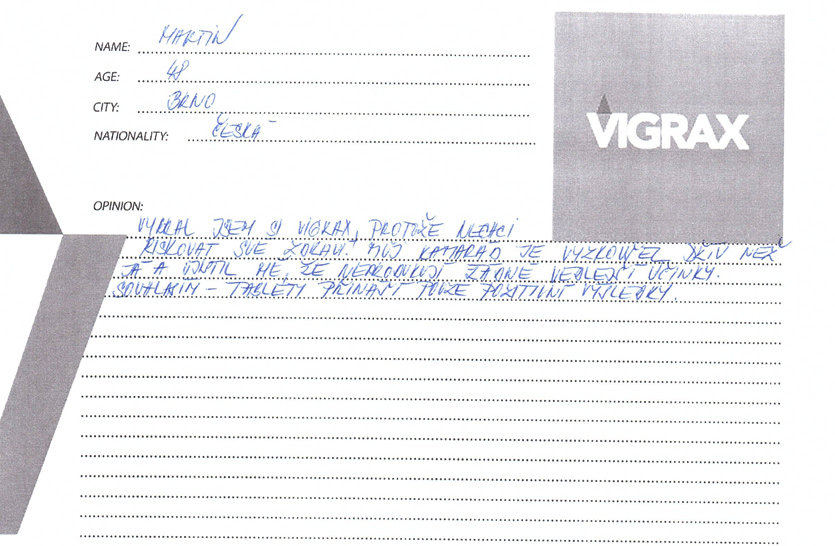 NAME: MARTIN
AGE: 48
CITY: BRNO
NATIONALITY: ČESKÁ
VIGRAX
OPINION:
VYBRAL JSEM SI VIGRAX, PROTOŽE NECHCI
RISKOVAT SVÉ ZDRAVÍ. MŮJ KAMARÁD JE VYZKOUŠEL DŘÍV NEŽ
JÁ A UJISTIL MĚ, ŽE NEPRODUKUJÍ ŽÁDNÉ VEDLEJŠÍ ÚČINKY.
SOUHLASÍM – TABLETY PŘINÁŠÍ POUZE POZITIVNÍ VÝSLEDKY.